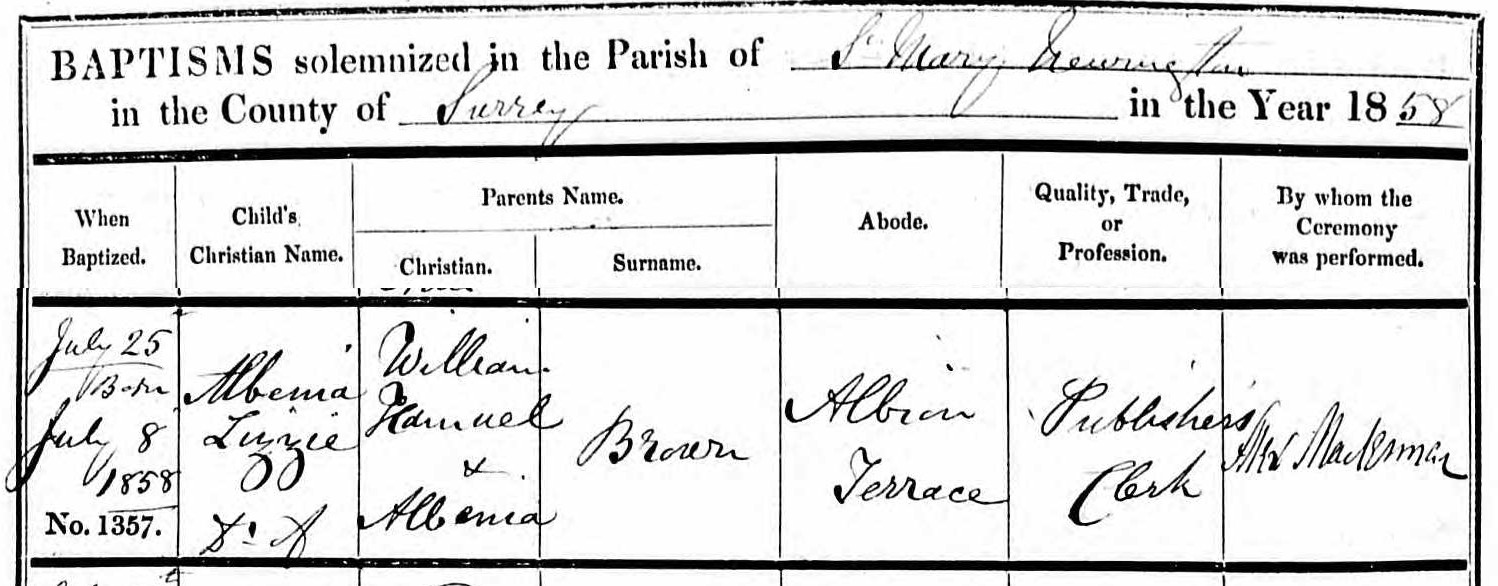 BAPTISMS solemnized in the Parish of St Mary Newington
in the County of Surrey in the Year 1858
When
Baptized.
Child's
Christian Name.
Parents Name.
Christian.
Surname.
Abode.
Quality, Trade,
or
Profession.
By whom the
Ceremony
was performed.
July 25
Born
July 8
1858
No. 1357.
Albenia
Lizzie
Dr of
William
Samuel
&
Albenia
Brown
Albion
Terrace
Publishers
Clerk